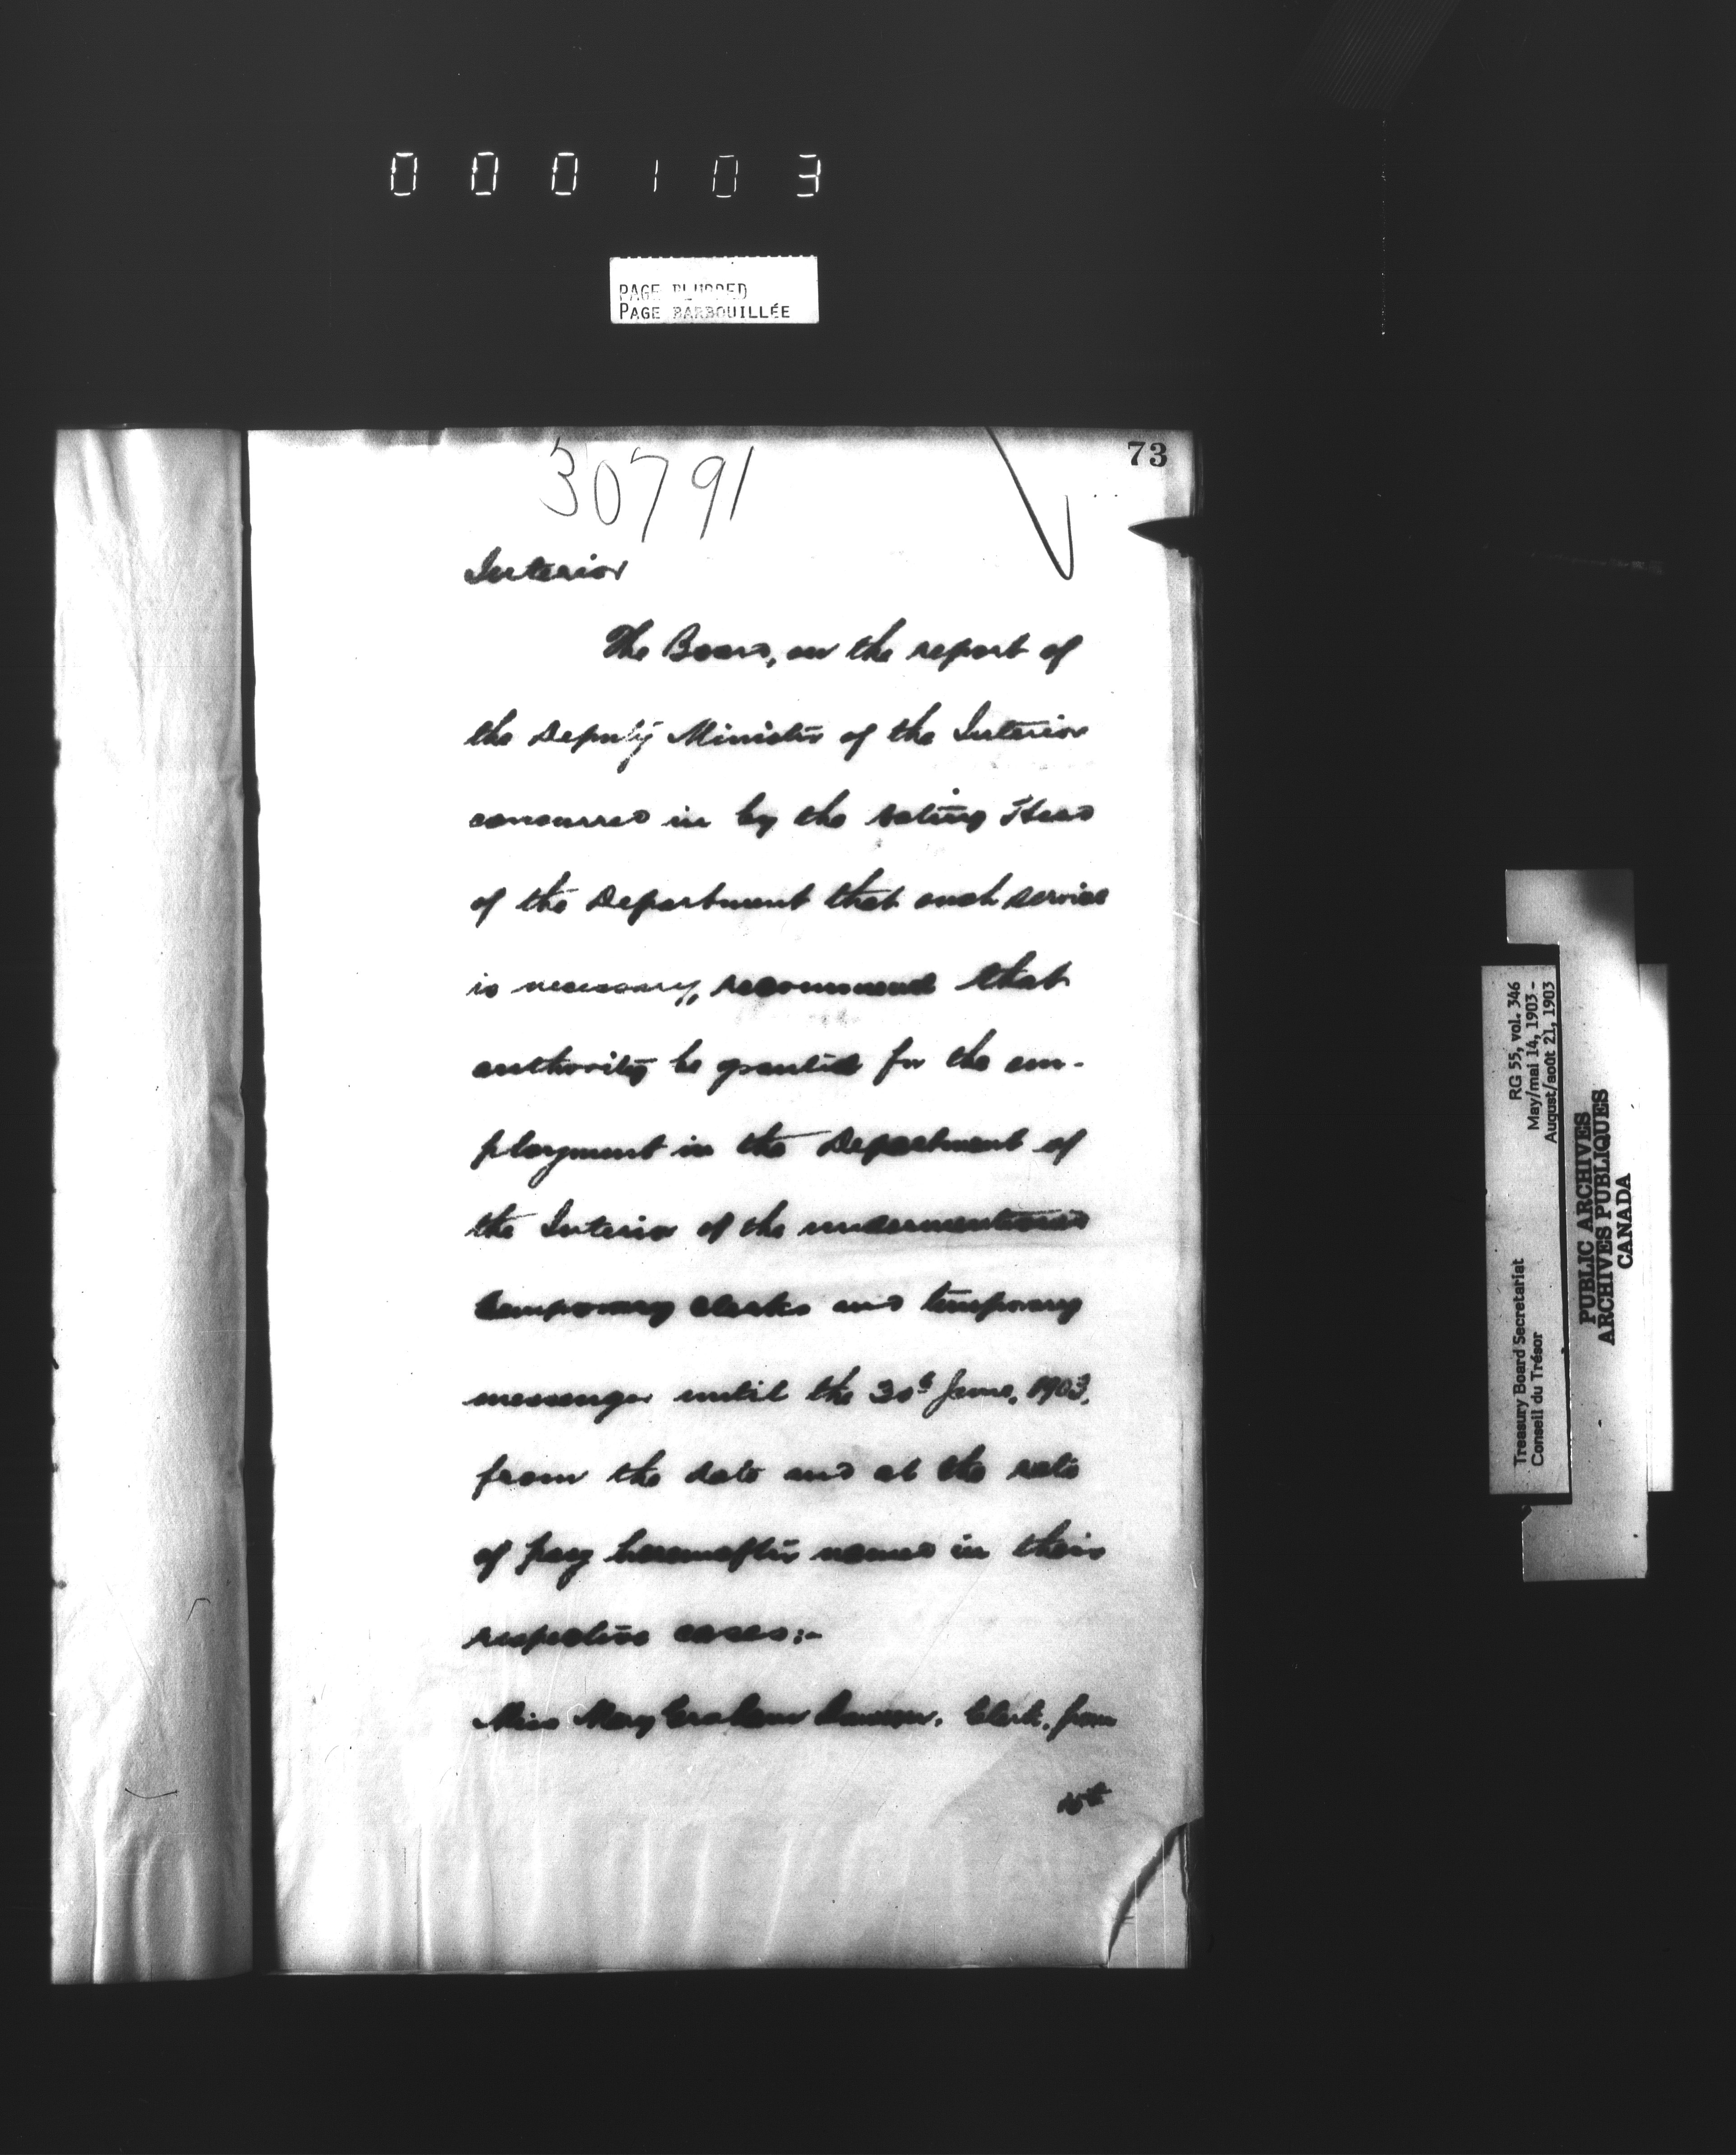 000103
PAGE BLURRED
PAGE BARBOUILLÉE
73
30791
Interior
The Board, on the report of
the Deputy Minister of the Interior
concurred in by the acting Head
of the Department that such service
is necessary, recommend that
authority be granted for the em-
ployment in the Department of
the Interior of the undermentioned
temporary clerks and temporary
messenger until the 30th June, 1903,
from the date and at the rate
of pay hereinafter named in their
respective cases:-
Miss Mary Graham Clerk, from
Treasury Board Secretariat RG 55, vol. 346
Conseil du Trésor May/mai 14, 1903 -
August/août 21, 1903
PUBLIC ARCHIVES
ARCHIVES PUBLIQUES
CANADA